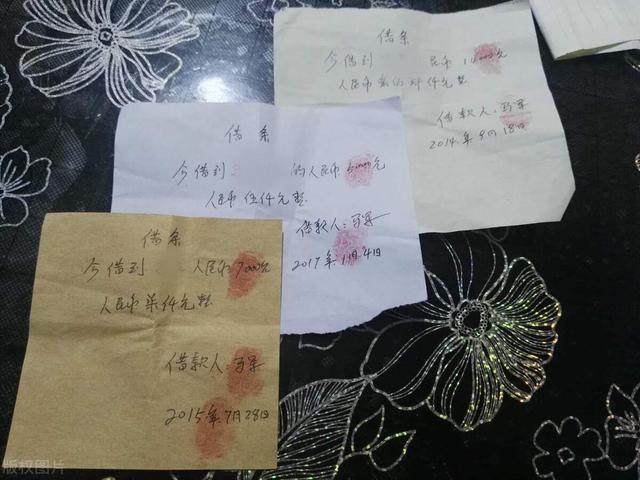 借条
今借到 民币 元
人民币 仟元整
借款人:
2014年9月18日
借条
今借到 的人民币5000元
人民币伍仟元整
借款人:
2017年1月4日
借条
今借到 人民币7000元
人民币柒仟元整
借款人:
2015年7月28日
版权图片